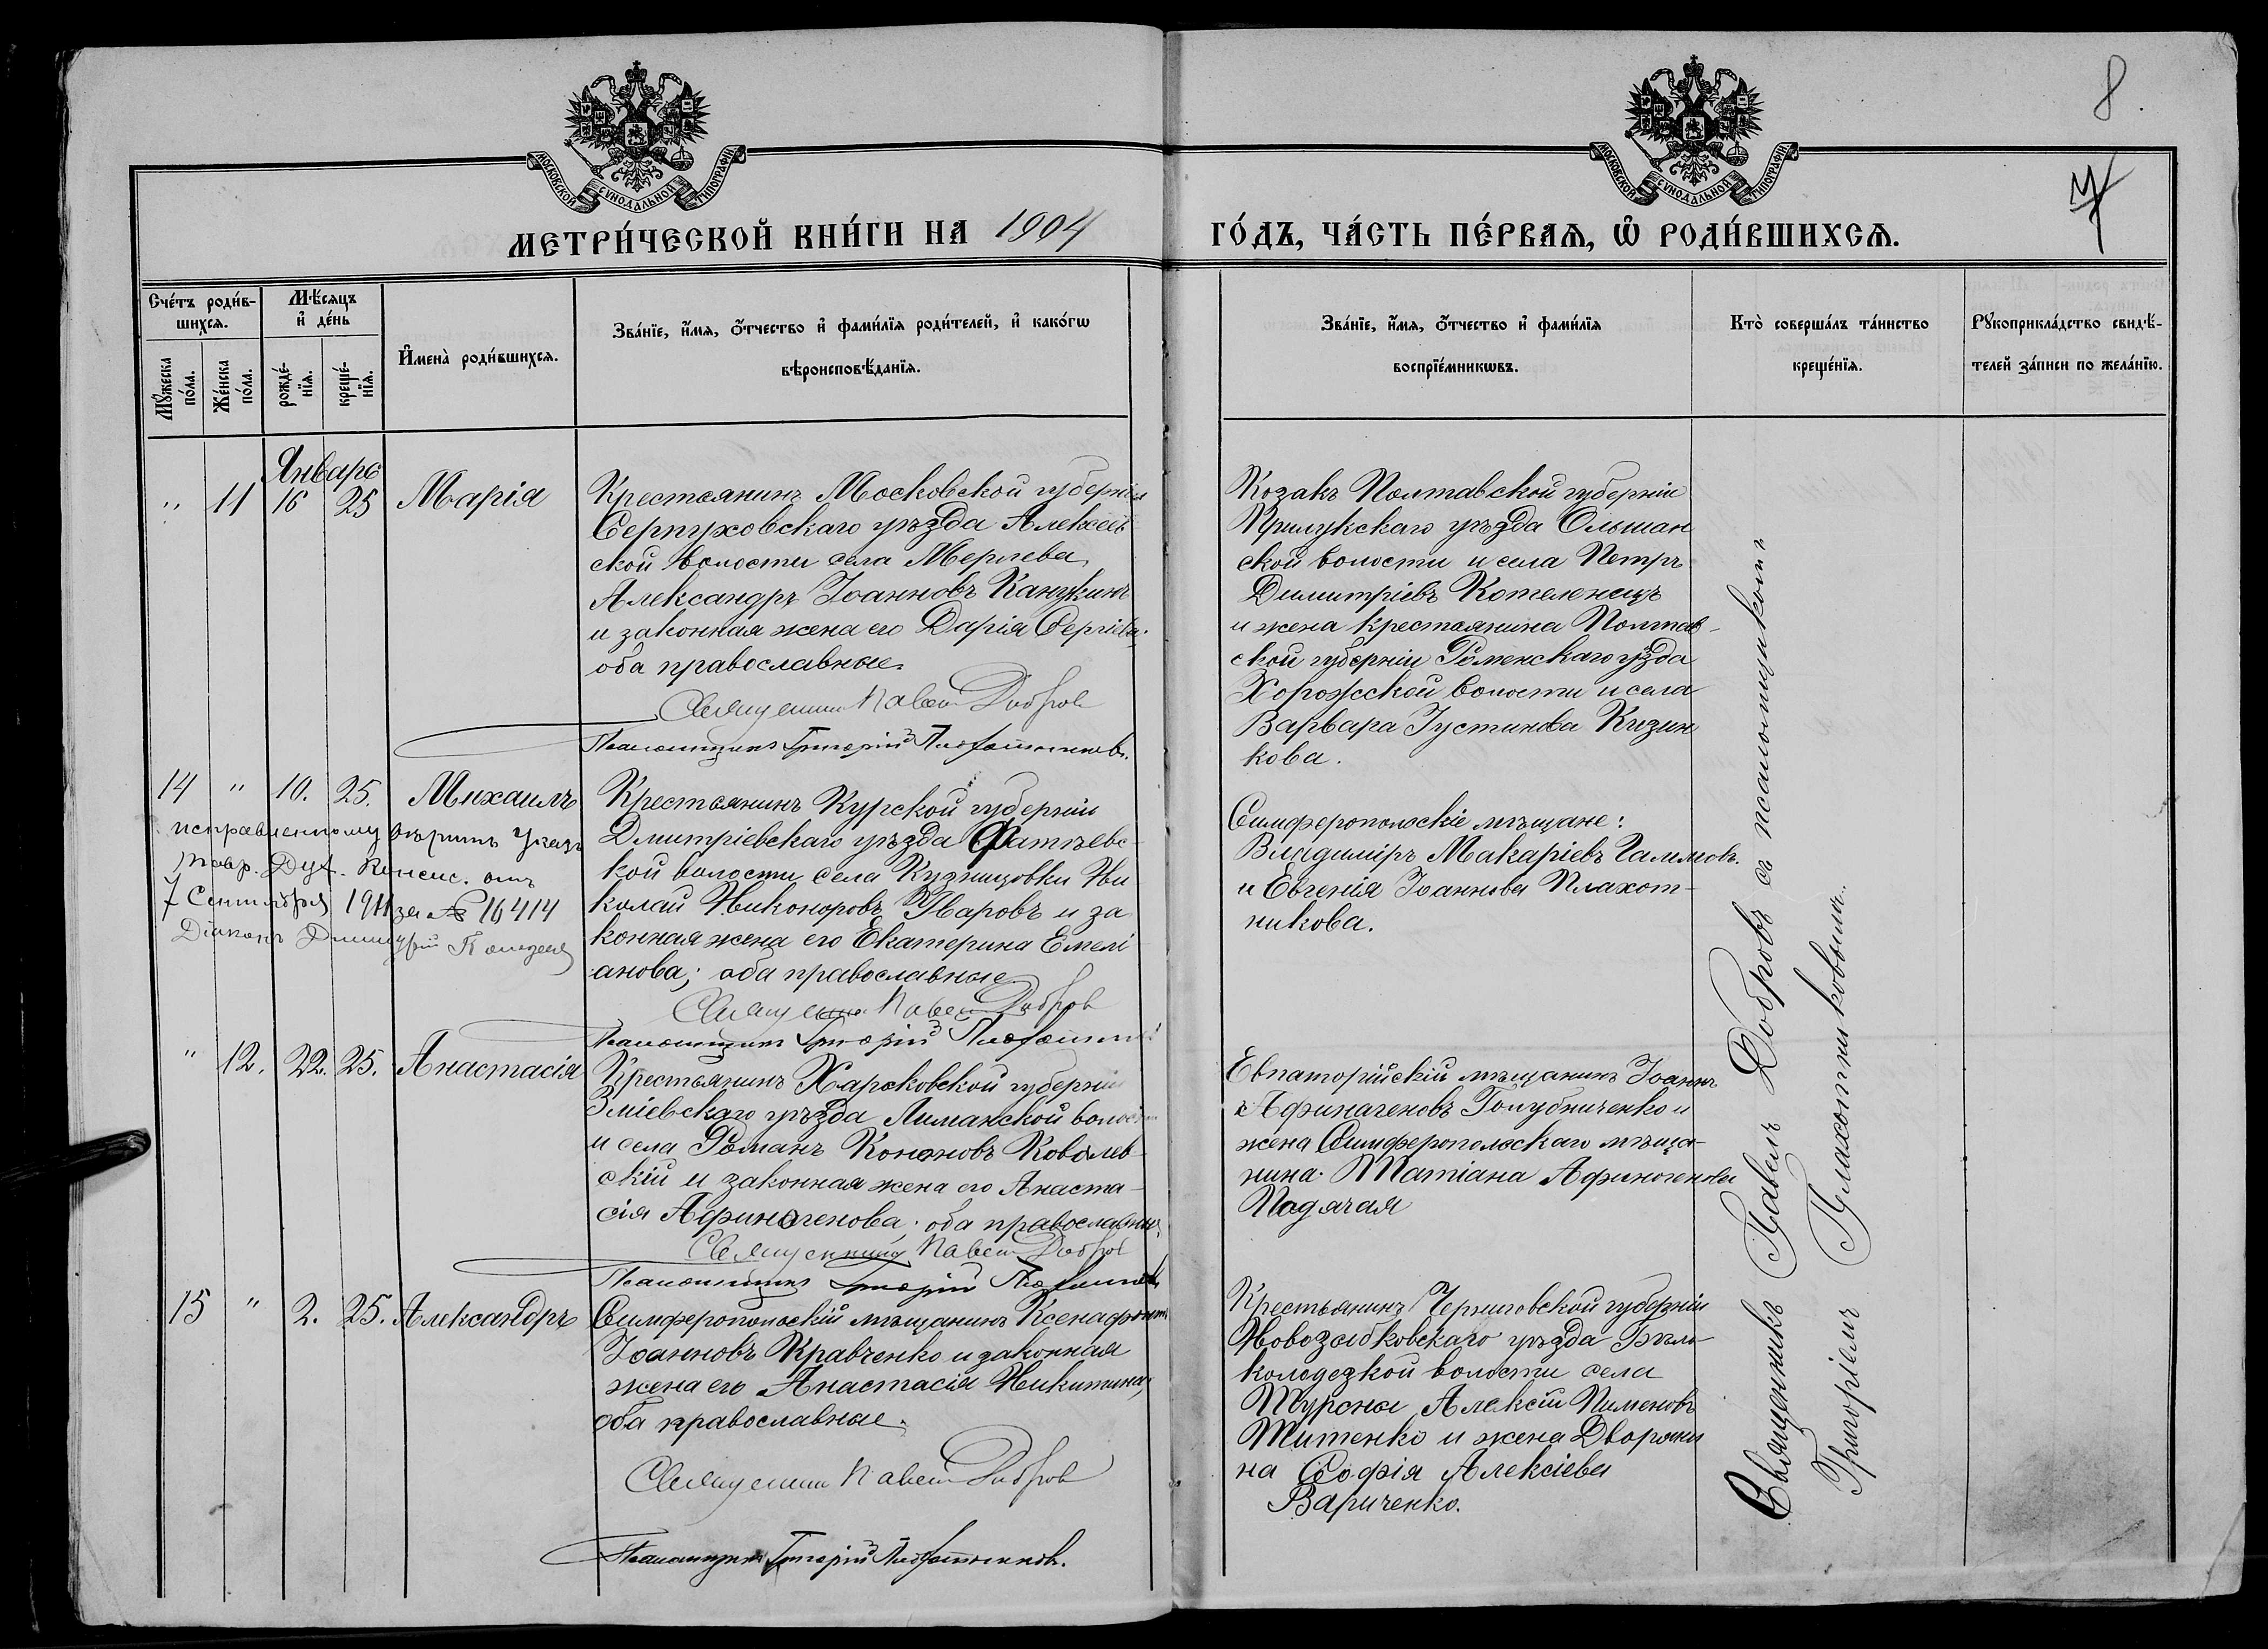 8.
7
МОСКОВСКОЙ СѴНОДАЛЬНОЙ ТИПОГРАФІИ
МОСКОВСКОЙ СѴНОДАЛЬНОЙ ТИПОГРАФІИ
МЕТРИ́ЧЕСКОЙ КНИ́ГИ НА 1904
ГО́ДЪ, ЧА́СТЬ ПЕ́РВАѦ, Ѿ РОДИ́ВШИХСѦ.
Сче́тъ роди́в-
шихсѧ.
Мꙋ́жеска
по́ла.
Же́нска
по́ла.
Мѣ́сѧцъ
и҆ де́нь
рожде́-
нїѧ.
креще́-
нїѧ.
И҆мена̀ роди́вшихсѧ.
Зва́нїе, и҆́мѧ, ѻ҆́тчество и҆ фами́лїѧ роди́телей, и҆ како́гѡ
вѣроисповѣ́данїѧ.
Зва́нїе, и҆́мѧ, ѻ҆́тчество и҆ фами́лїѧ
воспрїе́мникѡвъ.
Кто̀ соверша́лъ та́инство
креще́нїѧ.
Рꙋкоприкла́дство свидѣ́-
телей за́писи по жела́нїю.
Январь
" 11 16 25 Марія
Крестьянинъ Московской губерніи
Серпуховскаго уѣзда Алексѣев
ской волости села Мерлева
Александръ Іоанновъ Канушкинъ
и законная жена его Дарія Сергіева;
оба православные.
Священникъ Павелъ Добров
Псаломщикъ Григорій Плахотниковъ.
Козакъ Полтавской губерніи
Прилукскаго уѣзда Ольшан
ской волости и села Петръ
Димитріевъ Котеленецъ
и жена крестьянина Полтав-
ской губерніи Роменскаго уѣзда
Хоружской волости и села
Варвара Іустинова Кизин
кова.
14 " 10. 25. Михаилъ
исправленному вѣрить Указъ
Тавр. Дух. Консис. отъ
7 Сентября 1911 за № 16414
Діаконъ Димитрій
Крестьянинъ Курской губерніи
Дмитріевскаго уѣзда Фатѣевс-
кой волости села Кузницовки Ни
колай Никоноровъ Уваровъ и за
конная жена его Екатерина Емелі
анова; оба православные
Священникъ Павелъ Добров
Псаломщикъ Григорій
Симферопольскіе мѣщане:
Владиміръ Макаріевъ Галимовъ.
и Евгенія Іоаннова Плахот-
никова.
" 12. 22. 25. Анастасія
Крестьянинъ Харьковской губерніи
Зміевскаго уѣзда Лиманской волости
и села Романъ Кононовъ Ковалев
скій и законная жена его Анаста-
сія Афиногенова; оба православные
Священникъ Павелъ Добров
Псаломщикъ Григорій
Евпаторійскій мѣщанинъ Іоаннъ
Афиногеновъ Голубниченко и
жена Симферопольскаго мѣща-
нина Татіана Афиногенова
Подячая
15 " 2. 25. Александръ
Симферопольскій мѣщанинъ Ксенофонтъ
Іоанновъ Кравченко и законная
жена его Анастасія Никитина,
оба православные.
Священникъ Павелъ Добров
Псаломщикъ Григорій Плахотниковъ.
Крестьянинъ Черниговской губерніи
Новозыбковскаго уѣзда Бѣло
колодезкой волости села
Турсны Алексій Пименовъ
Титенко и жена Дворяни
на Софія Алексіева
Вариченко.
Священникъ Павелъ Добровъ съ псаломщикомъ
Григоріемъ Плахотниковымъ.